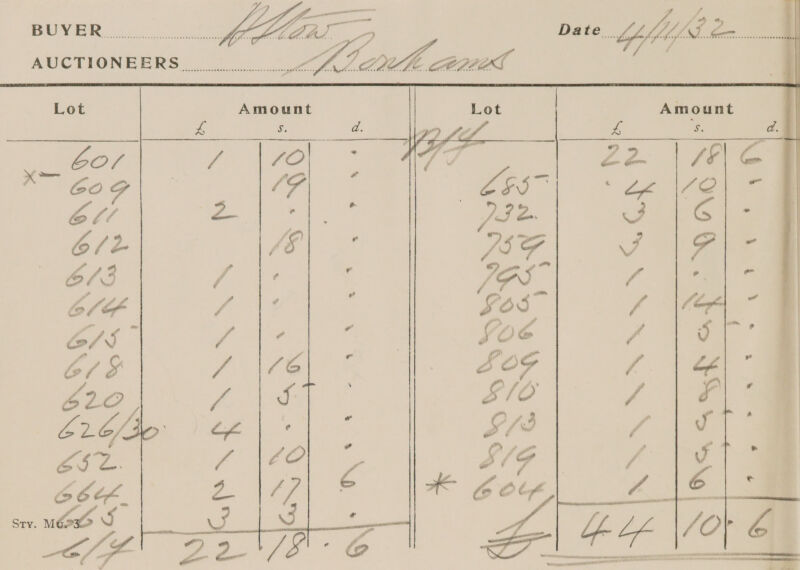 BUYER A Stow Date 4/11/32
AUCTIONEERS Bonhams
Lot Amount
£ s. d.
601 1 10 "
*— 609 19 "
611 2 . "
612 18 "
613 1 . "
614 1 . "
615 1 . "
618 1 16 "
620 1 5 "
626/30 4 . "
652 1 10 "
664 2 17 6
665 3 3 .
STY. Mc. 3
C/f 22 . 18 . 6
Lot Amount
£ s. d.
B/f 22 18 6
685 4 10 "
732 3 6 "
759 3 9 "
795 1 . "
805 1 14 "
806 1 5 "
809 1 4 "
810 1 8 "
813 1 5 "
819 1 5 "
* 604 1 6 "
£ 44 10 . 6